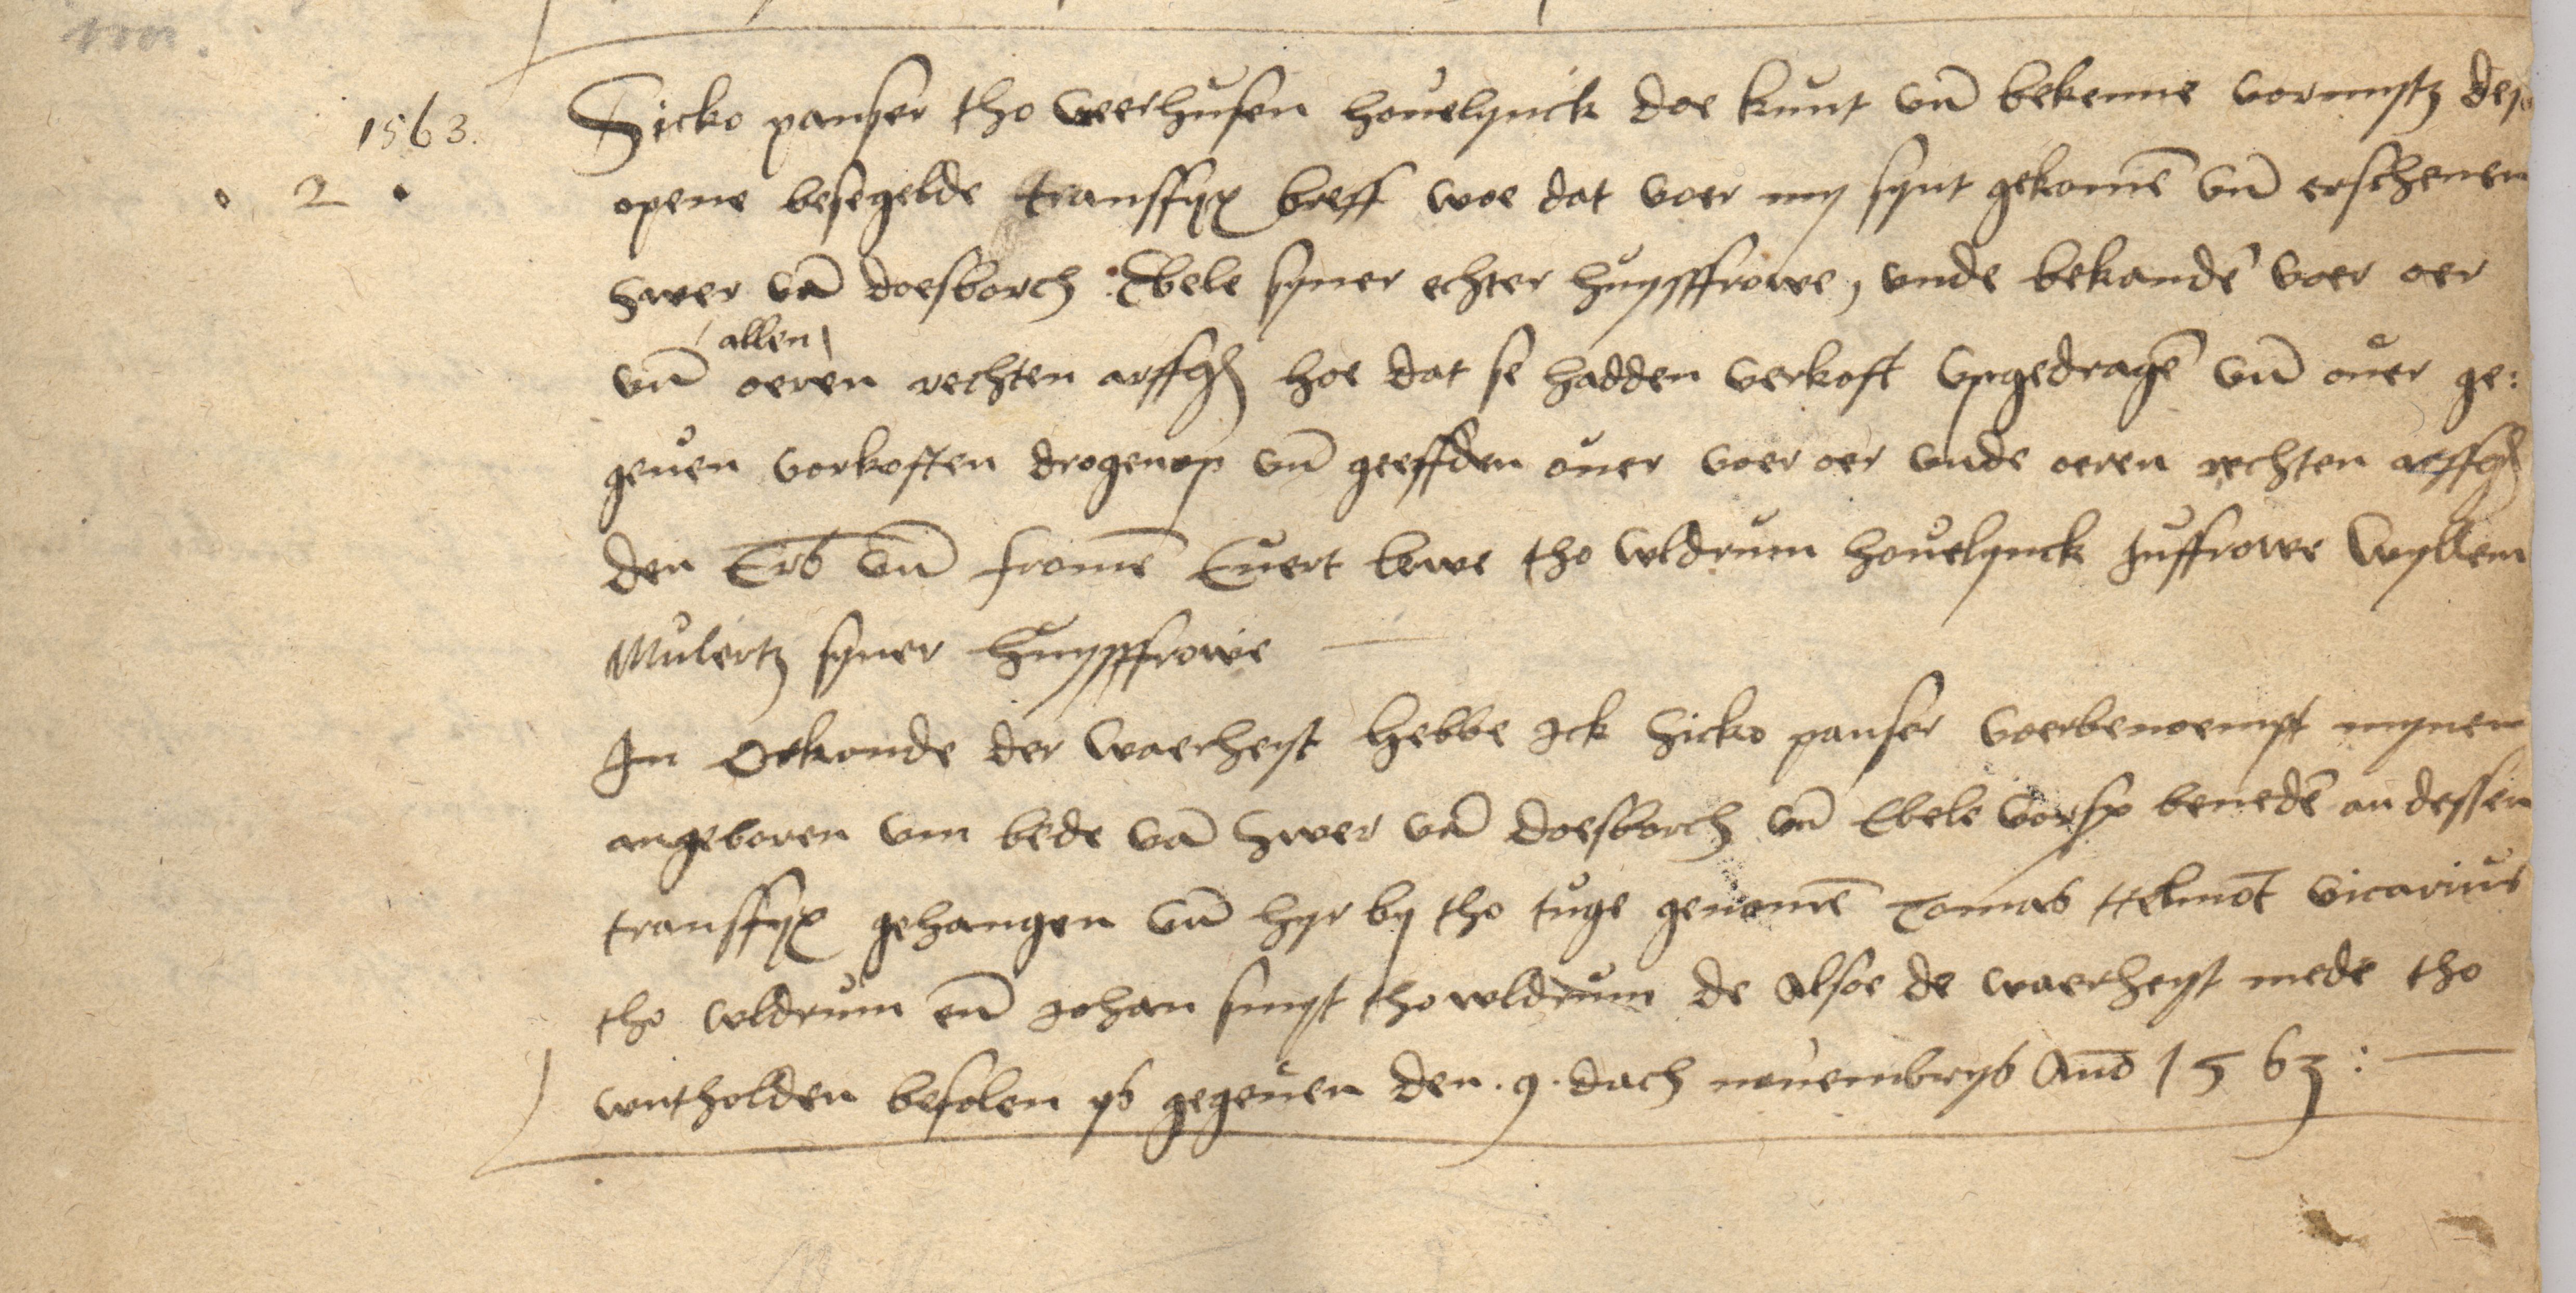 1563.
. 2 .
Sicko panser tho veerhusen hovelynck doe kunt vn̄ bekenne vormystz
opene besegelde transfyx breff woe dat voer my synt gekomē vn̄ erschenen
Swer vā doesborch : Ebele syner echter huysffrowe, vnde bekandē voer oer
allen
vn̄ oeren rechten arffgn̄ hoe dat se hadden verkoft vpgedragē vn̄ over ge:
geven vorkoften drogenop vn̄ geeffden over voer oer vnde oeren rechten arffgn̄
den Erb vn̄ fromē Evert lewe tho vldrum hovelynck Juffrowe Wyllem
Mulertz syner huysffrowe
In Oekonde der waerheyt hebbe Ick Sicko panser voerbenoempt mynen
angeboren vm bede vā Swer vā doesborch vn̄ Ebele vorsz benedē an dessen
transfyx gehangen vn̄ hyr by tho tuge genomē Tomas vicarius
tho vldrum en̄ Johan smyt tho vldrum de alsoe de waerheyt mede tho
vntholden befolen ys gegeven den . 9 . dach novembrys An̄o 1563 :